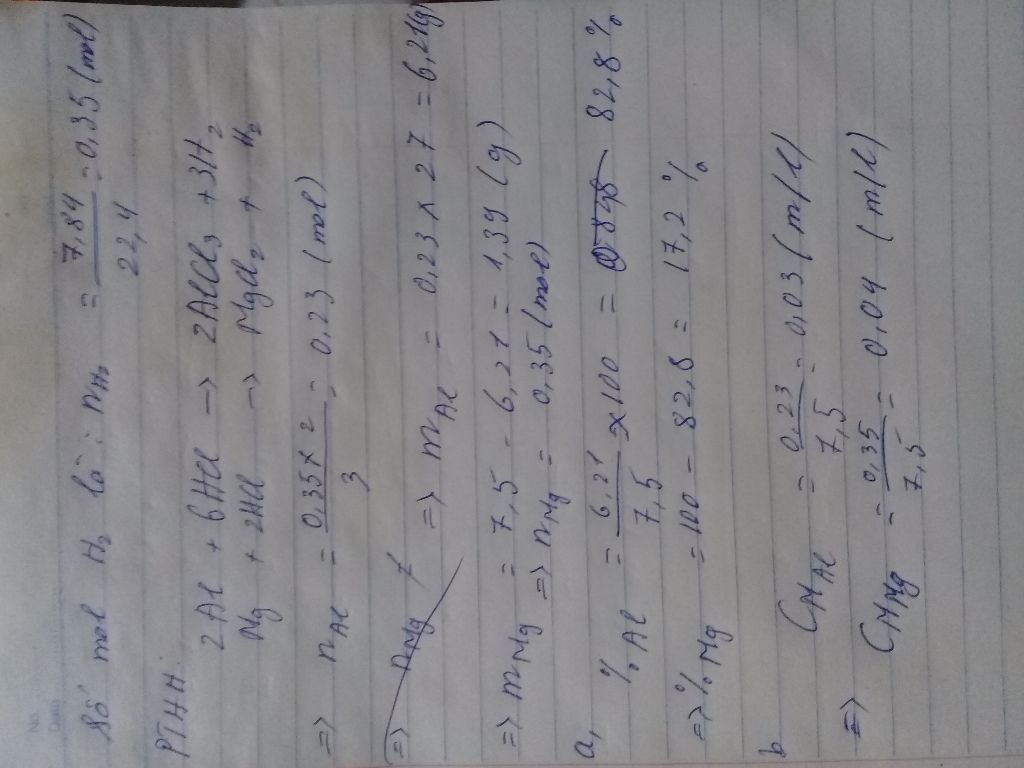 Số mol H₂ là: nH₂ = 7,84 / 22,4 = 0,35 (mol)
PTHH:
2Al + 6HCl → 2AlCl₃ + 3H₂
Mg + 2HCl → MgCl₂ + H₂
=> nAl = 0,35 x 2 / 3 = 0,23 (mol)
=> nMg => mAl = 0,23 x 27 = 6,21(g)
=> mMg = 7,5 - 6,21 = 1,39 (g)
=> nMg = 0,35 (mol)
a, % Al = 6,21 / 7,5 x100 = 82,8 %
=> % Mg = 100 - 82,8 = 17,2 %
b CM Al = 0,23 / 7,5 = 0,03 (m/l)
=> CM Mg = 0,35 / 7,5 = 0,04 (m/l)